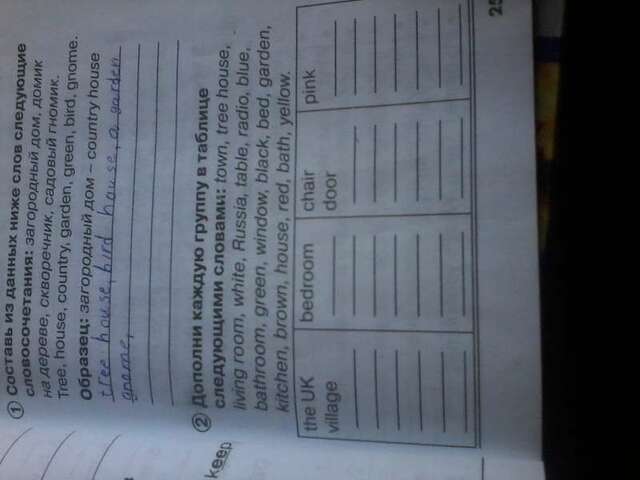 ① Составь из данных ниже слов следующие
словосочетания: загородный дом, домик
на дереве, скворечник, садовый гномик.
Tree, house, country, garden, green, bird, gnome.
Образец: загородный дом – country house
tree house, bird house, a garden
gnome,
② Дополни каждую группу в таблице
следующими словами: town, tree house,
living room, white, Russia, table, radio, blue,
bathroom, green, window, black, bed, garden,
kitchen, brown, house, red, bath, yellow.
the UK bedroom chair pink
village door
keep
25